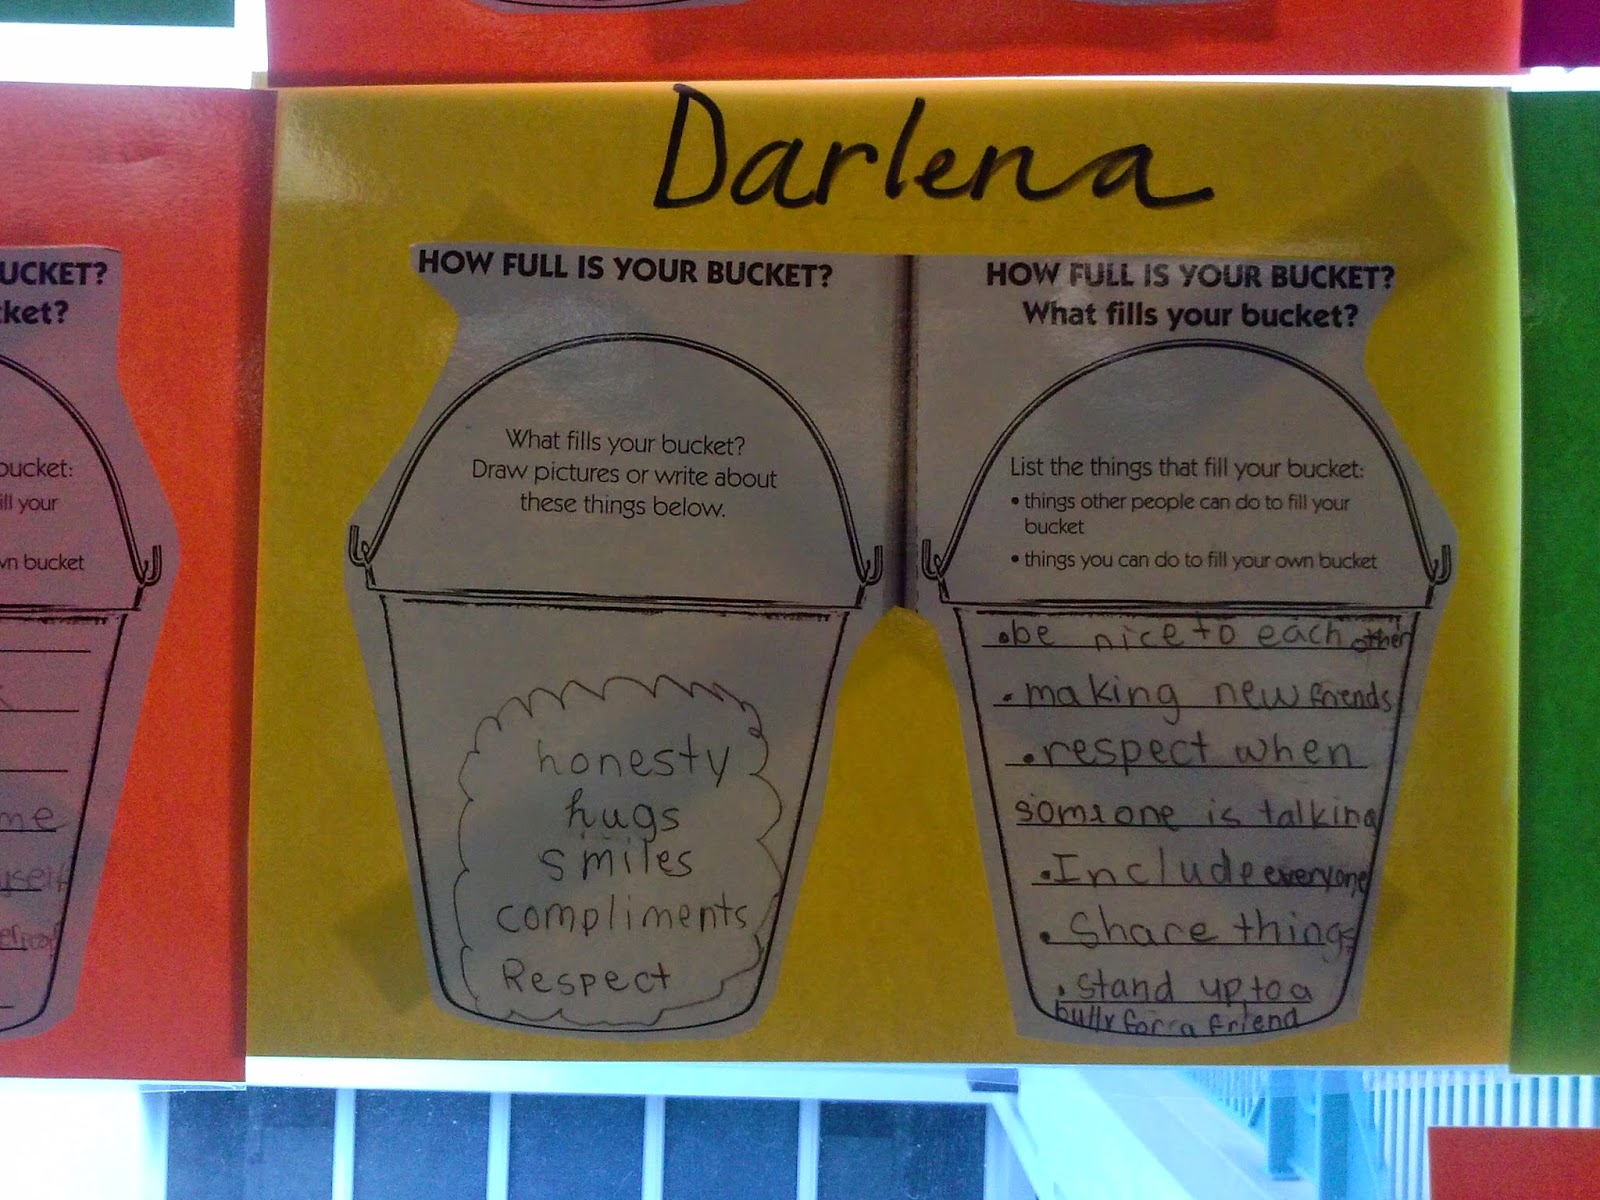 Darlena
HOW FULL IS YOUR BUCKET?
What fills your bucket?
Draw pictures or write about
these things below.
honesty
hugs
smiles
compliments
Respect
HOW FULL IS YOUR BUCKET?
What fills your bucket?
List the things that fill your bucket:
• things other people can do to fill your
bucket
• things you can do to fill your own bucket
•be nice to each other
•making new friends
•respect when
someone is talking
•Include everyone
•Share things
•stand up to a
bully for a friend
UCKET?
cket?
bucket:
ill your
wn bucket
me
yself